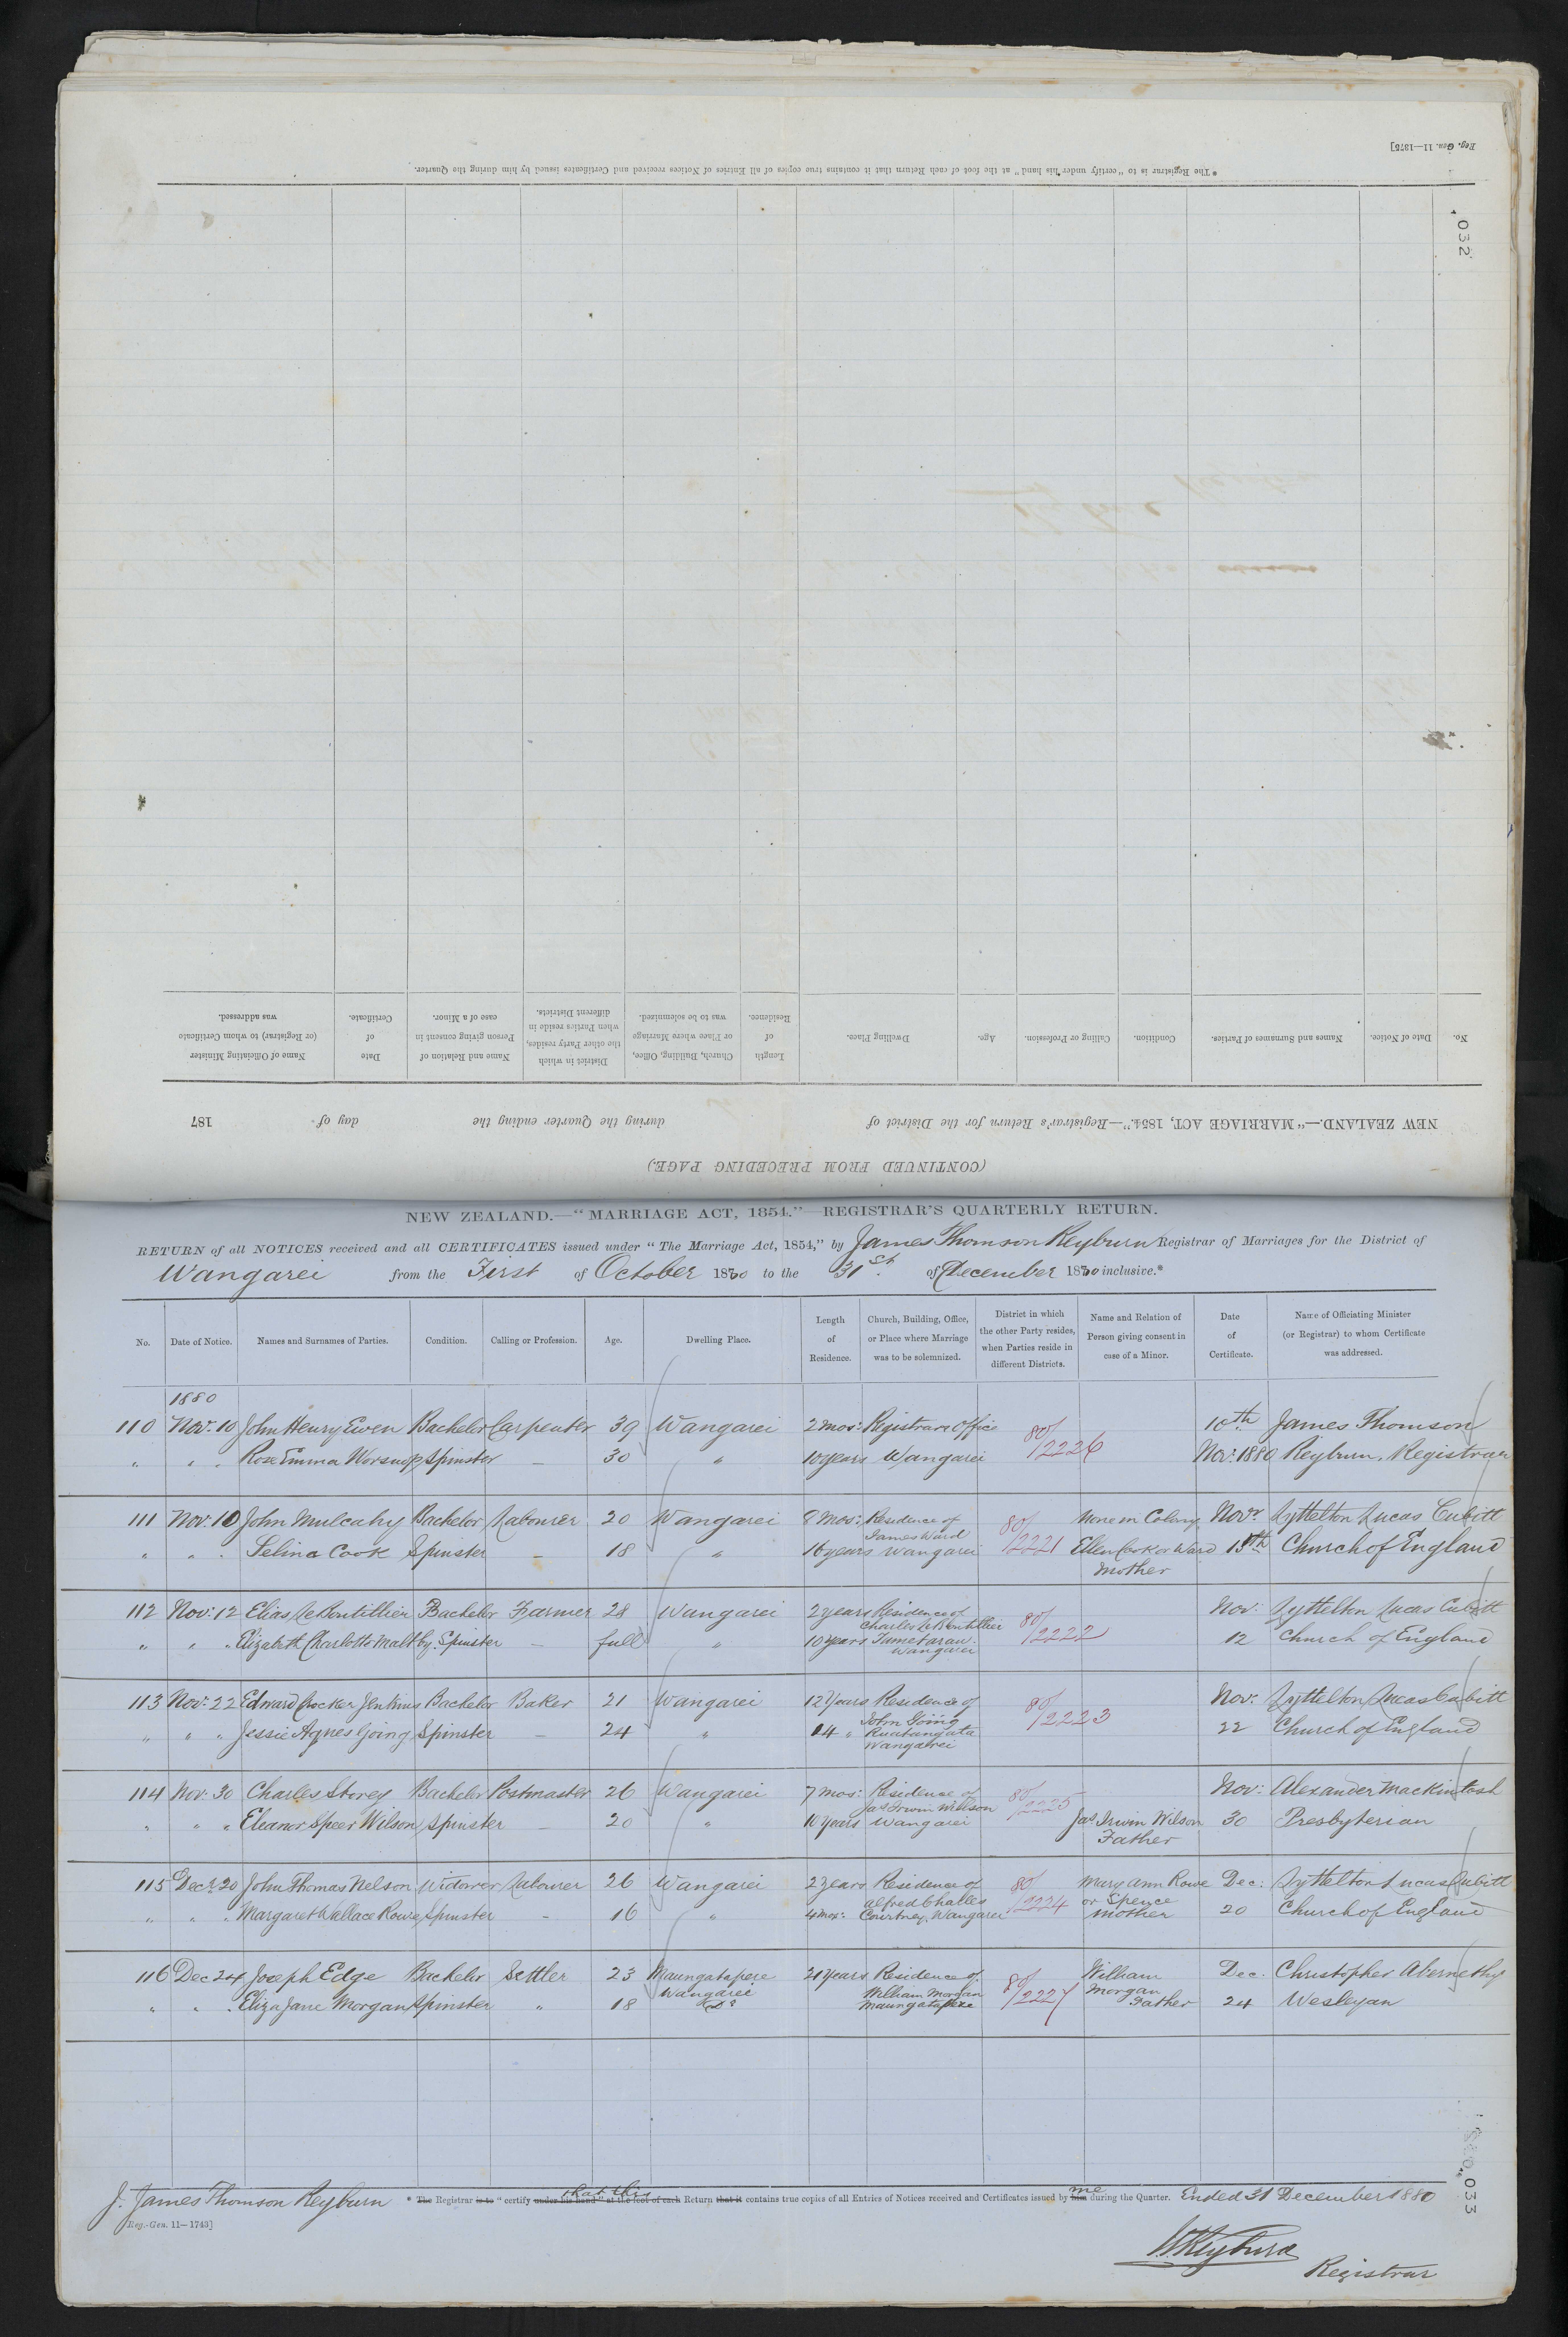 Reg. Gen. 11—1375]
* The Registrar is to "certify under his hand" at the foot of each Return that it contains true copies of all Entries of Notices received and Certificates issued by him during the Quarter.
032
(CONTINUED FROM PRECEDING PAGE.)
NEW ZEALAND.—"MARRIAGE ACT, 1854."—Registrar's Return for the District of during the Quarter ending the day of 187
No. Date of Notice. Names and Surnames of Parties. Condition. Calling or Profession. Age. Dwelling Place. Length of Residence. Church, Building, Office, or Place where Marriage was to be solemnized. District in which the other Party resides, when Parties reside in different Districts. Name and Relation of Person giving consent in case of a Minor. Date of Certificate. Name of Officiating Minister (or Registrar) to whom Certificate was addressed.
NEW ZEALAND.—"MARRIAGE ACT, 1854."—REGISTRAR'S QUARTERLY RETURN.
RETURN of all NOTICES received and all CERTIFICATES issued under "The Marriage Act, 1854," by James Thomson Reyburn Registrar of Marriages for the District of
Wangarei from the First of October 1880 to the 31st. of December 1880 inclusive.*
No. Date of Notice. Names and Surnames of Parties. Condition. Calling or Profession. Age. Dwelling Place. Length of Residence. Church, Building, Office, or Place where Marriage was to be solemnized. District in which the other Party resides, when Parties reside in different Districts. Name and Relation of Person giving consent in case of a Minor. Date of Certificate. Name of Officiating Minister (or Registrar) to whom Certificate was addressed.
1880
110 Nov: 10 John Henry Ewen Bachelor Carpenter 39 Wangarei 2 mos: Registrars Office 80/2226 10th. James Thomson
" " " Rose Emma Worsnop Spinster — 30 " 10 years Wangarei Nov: 1880 Reyburn, Registrar
111 Nov: 10 John Mulcahy Bachelor Labourer 20 Wangarei 8 Mos: Residence of James Ward 80/2221 None in Colony Novr Lyttelton Lucas Cubitt
" " " Selina Cook Spinster — 18 " 16 years Wangarei Ellen Cook or Ward Mother 15th Church of England
112 Nov: 12 Elias Le Boutillier Bachelor Farmer 28 Wangarei 2 years Residence of Charles Le Boutillier 80/2222 Nov: Lyttelton Lucas Cubitt
" " " Elizabeth Charlotte Maltby Spinster — full " 10 years Tameterau Wangarei 12 Church of England
113 Nov: 22 Edward Crocker Jenkins Bachelor Baker 21 Wangarei 12 Years Residence of 80/2223 Nov: Lyttelton Lucas Cubitt
" " " Jessie Agnes Going Spinster — 24 " 14 " John Going Ruatangata Wangarei 22 Church of England
114 Nov: 30 Charles Storey Bachelor Postmaster 26 Wangarei 7 mos: Residence of Jas Irwin Wilson 80/2225 Nov: Alexander Mackintosh
" " " Eleanor Speer Wilson Spinster — 20 " 10 years Wangarei Jas Irwin Wilson Father 30 Presbyterian
115 Decr 20 John Thomas Nelson Widower Labourer 26 Wangarei 2 years Residence of 80/2224 Mary Ann Rowe Dec: Lyttelton Lucas Cubitt
" " " Margaret Wallace Rowe Spinster - 16 " 4 mos: Alfred Challes Courtney, Wangarei or Spence Mother 20 Church of England
116 Dec 24 Joseph Edge Bachelor Settler 23 Maungatapere Wangarei 21 years Residence of 80/2227 William Dec. Christopher Abernethy
" " " Eliza Jane Morgan Spinster " 18 Do William Morgan Maungatapere Morgan Father 24 Wesleyan
I. James Thomson Reyburn * The Registrar is to "certify under his hand" at the foot of each that this Return that it contains true copies of all Entries of Notices received and Certificates issued by him me during the Quarter. Ended 31 December 1880
[Reg.-Gen. 11—1743]
033
Registrar